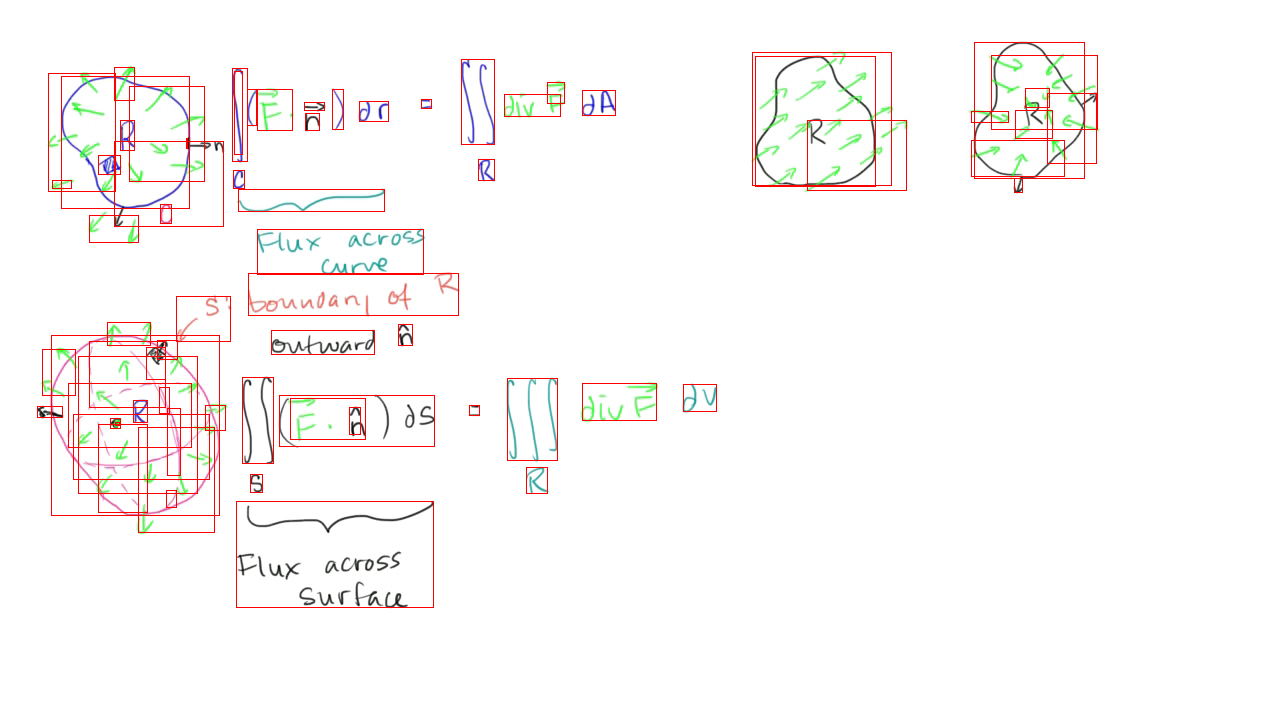 R
n
C
∫ ( F⃗ · n⃗ ) dr = ∬ div F⃗ dA
C R
Flux across
curve
S: boundary of R
outward n̂
R
∬ ( F⃗ · n̂ ) dS = ∭ div F⃗ dV
S R
Flux across
surface
R
R